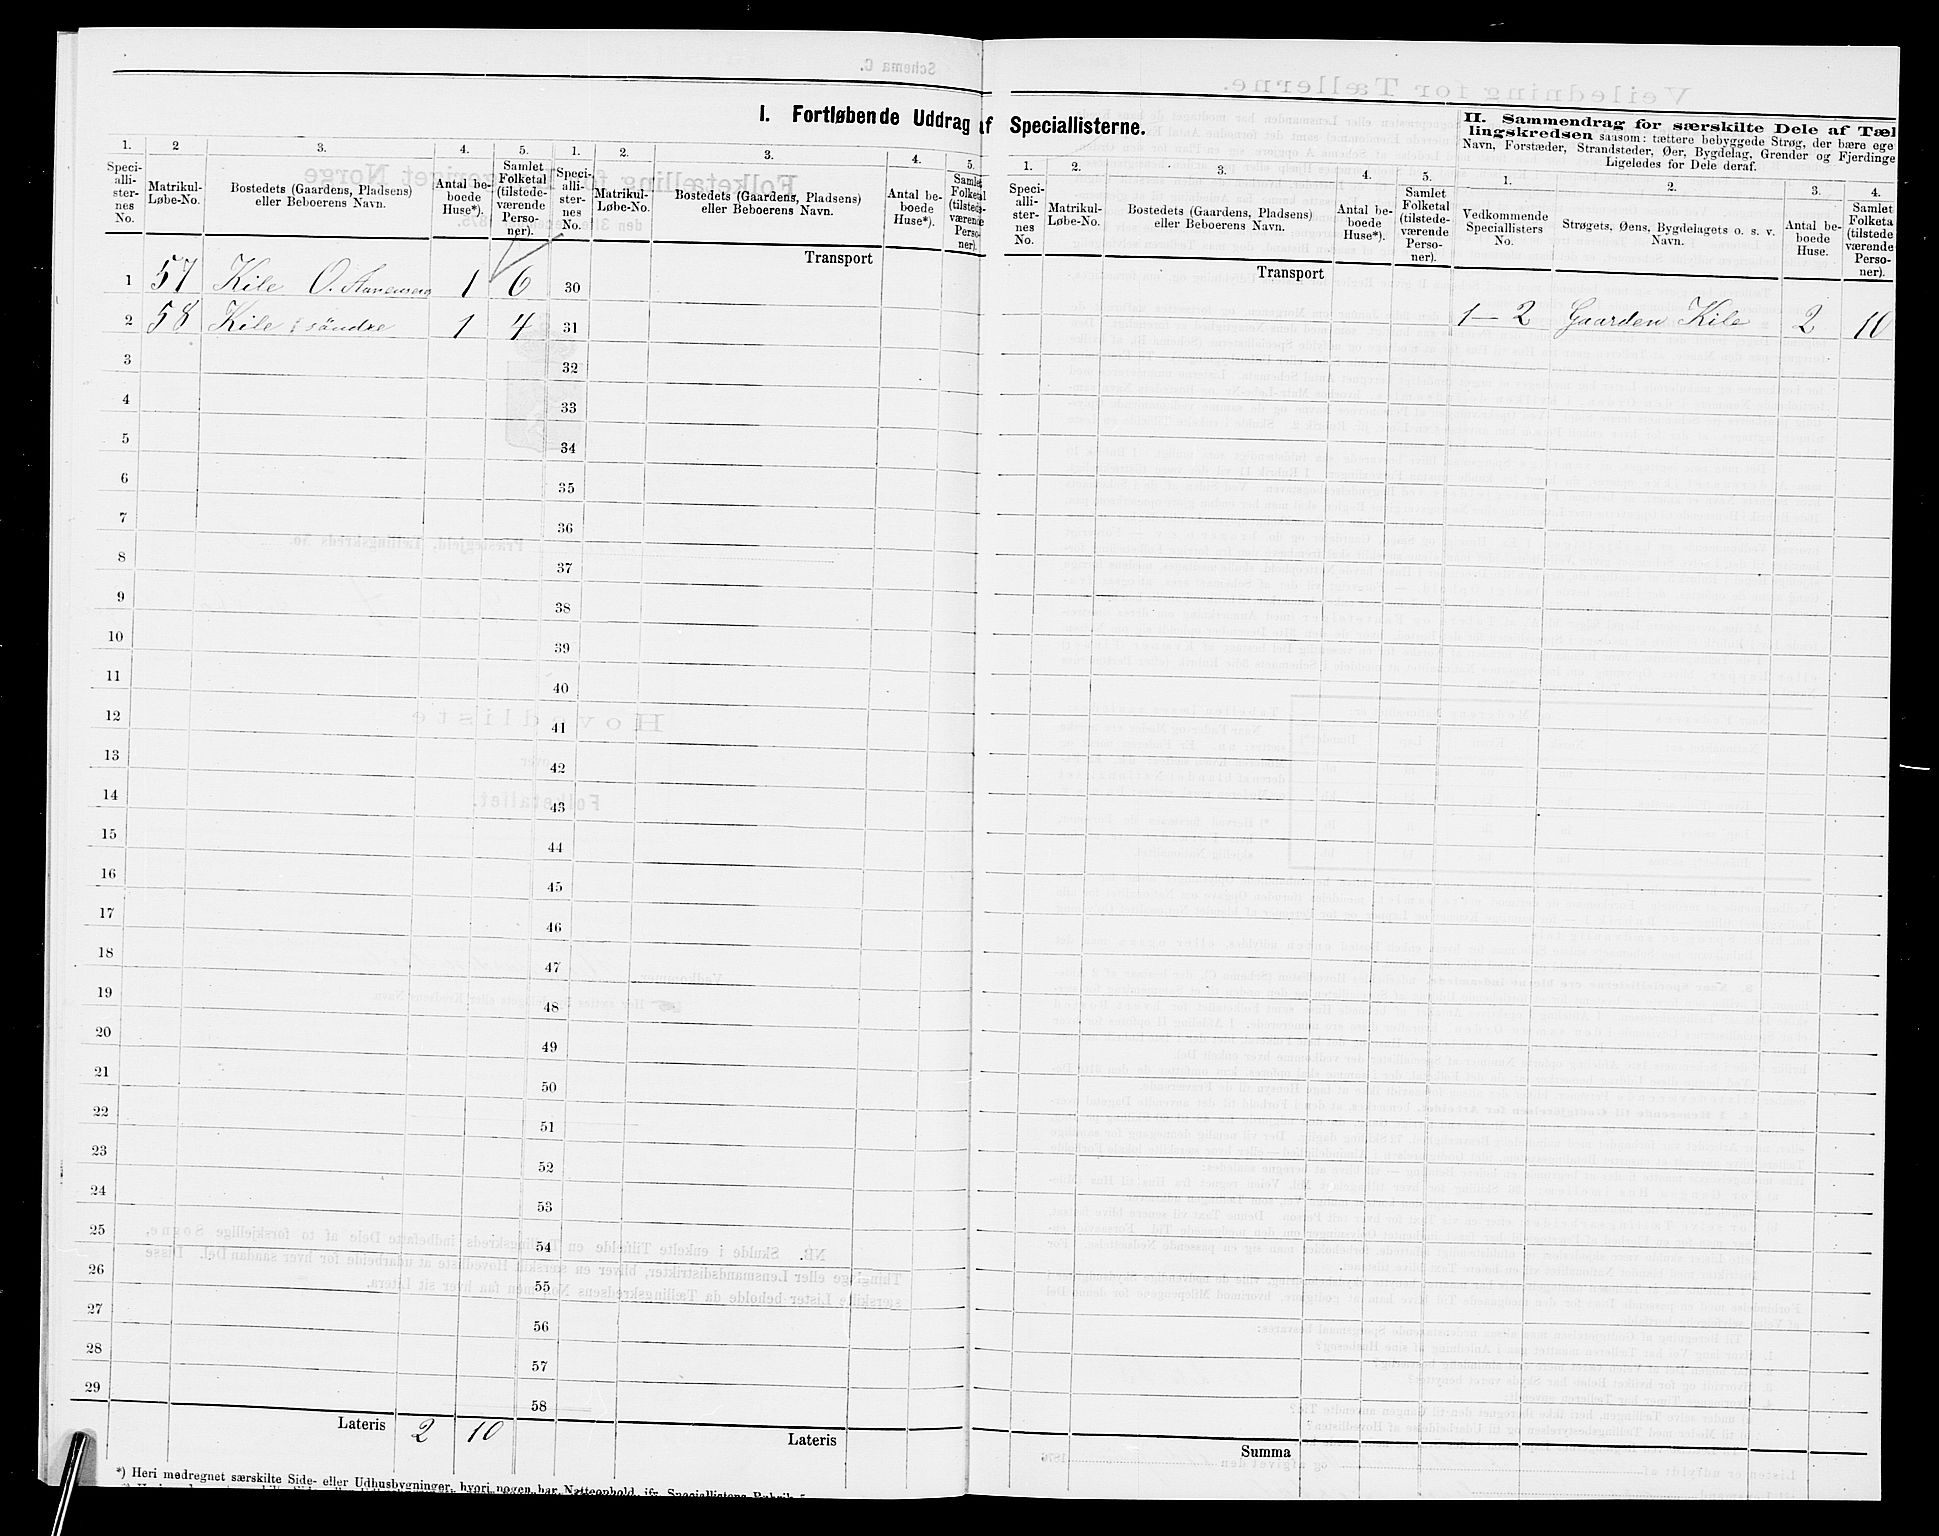 I. Fortløbende Uddrag af Speciallisterne.
1. 2 3. 4. 5. 1. 2. 3. 4. 5.
Speciallisternes No. Matrikul-Løbe-No. Bostedets (Gaardens, Pladsens) eller Beboerens Navn. Antal beboede Huse*). Samlet Folketal (tilstedeværende Personer).
Speciallisternes No. Matrikul-Løbe-No. Bostedets (Gaardens, Pladsens) eller Beboerens Navn. Antal beboede Huse*). Samlet Folketal (tilstedeværende Personer).
Transport
1 57 Kile 1 6 30
2 58 Kile søndre 1 4 31
3 32
4 33
5 34
6 35
7 36
8 37
9 38
10 39
11 40
12 41
13 42
14 43
15 44
16 45
17 46
18 47
19 48
20 49
21 50
22 51
23 52
24 53
25 54
26 55
27 56
28 57
29 58
Lateris 2 10 Lateris
*) Heri medregnet særskilte Side- eller Udhusbygninger, hvori nogen har Natteophold, jfr. Speciallistens Rubrik 5.
1. 2. 3. 4. 5.
Speciallisternes No. Matrikul-Løbe-No. Bostedets (Gaardens, Pladsens) eller Beboerens Navn. Antal beboede Huse*). Samlet Folketal (tilstedeværende Personer).
Transport
Summa
II. Sammendrag for særskilte Dele af Tæl
lingskredsen saasom: tættere bebyggede Strøg, der bære ege
Navn, Forstæder, Strandsteder, Øer, Bygdelag, Grender og Fjerdinge
Ligeledes for Dele deraf.
1. 2. 3. 4.
Vedkommende Speciallisters No. Strøgets, Øens, Bygdelagets o. s. v. Navn. Antal beboede Huse. Samlet Folketa (tilstede værende Personer).
1-2 Gaarden Kile 2 10